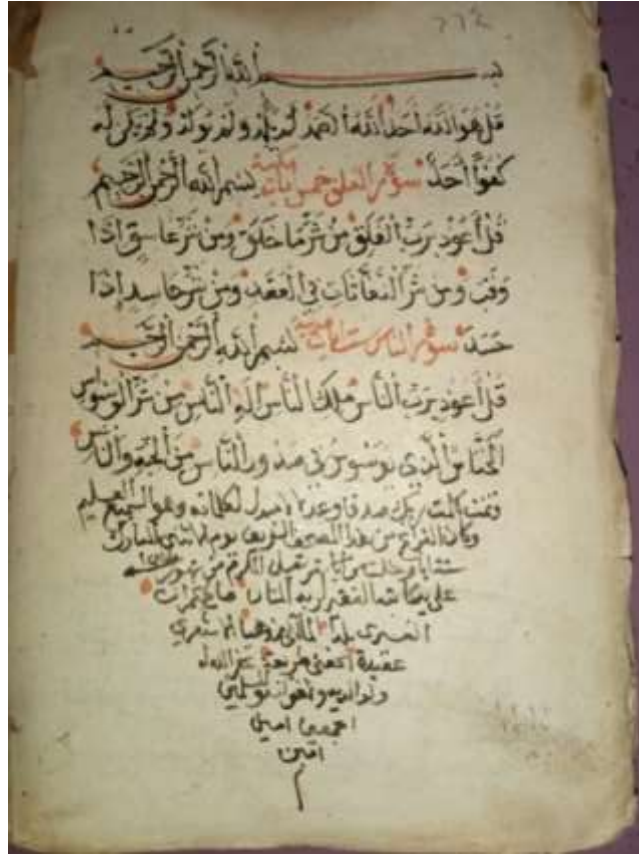 ٢٢٤
بسم الله الرحمن الرحيم
قل هو الله احد الله الصمد لم يلد ولم يولد ولم يكن له
كفوا أحد سورة الفلق خمس ايات بسم الله الرحمن الرحيم
قل أعوذ برب الفلق من شر ما خلق ومن شر غاسق اذا
وقب ومن شر النفاثات في العقد ومن شر حاسد إذا
حسد سورة الناس ست ايات بسم الله الرحمن الرحيم
قل أعوذ برب الناس ملك الناس اله الناس من شر الوسواس
الخناس الذي يوسوس في صدور الناس من الجنة والناس
وتمت كلمت ربك صدقا وعدلا لا مبدل لكلماته وهو السميع العليم
وكان الفراغ من هذا المصحف الشريف يوم الاثنين المبارك
من شهور
على يد كاتبه الفقير لربه المنان
بلدا المالكي مذهبا الاشعري
عقيدة طريقة غفر الله له
ولوالديه والمسلمين
اجمعين امين
امين
م